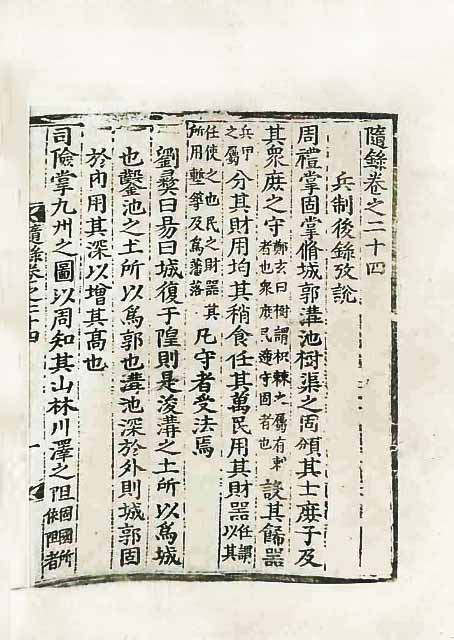 隨錄卷之二十四
兵制後錄攷說
周禮掌固掌脩城郭溝池樹渠之固頒其士庶子及
其衆庶之守鄭玄曰樹謂枳棘之屬有刺者也衆庶民遞守固者也設其飾器
兵甲之屬分其財用均其稍食任其萬民用其財器任謂以其
任使之也民之財器其所用塹築及爲藩落凡守者受法焉
劉彛曰易曰城復于隍則是浚溝之土所以爲城
也鑿池之土所以爲郭也溝池深於外則城郭固
於內用其深以增其高也
司險掌九州之圖以周知其山林川澤之阻固國所依阻者
隨錄卷之二十四 一